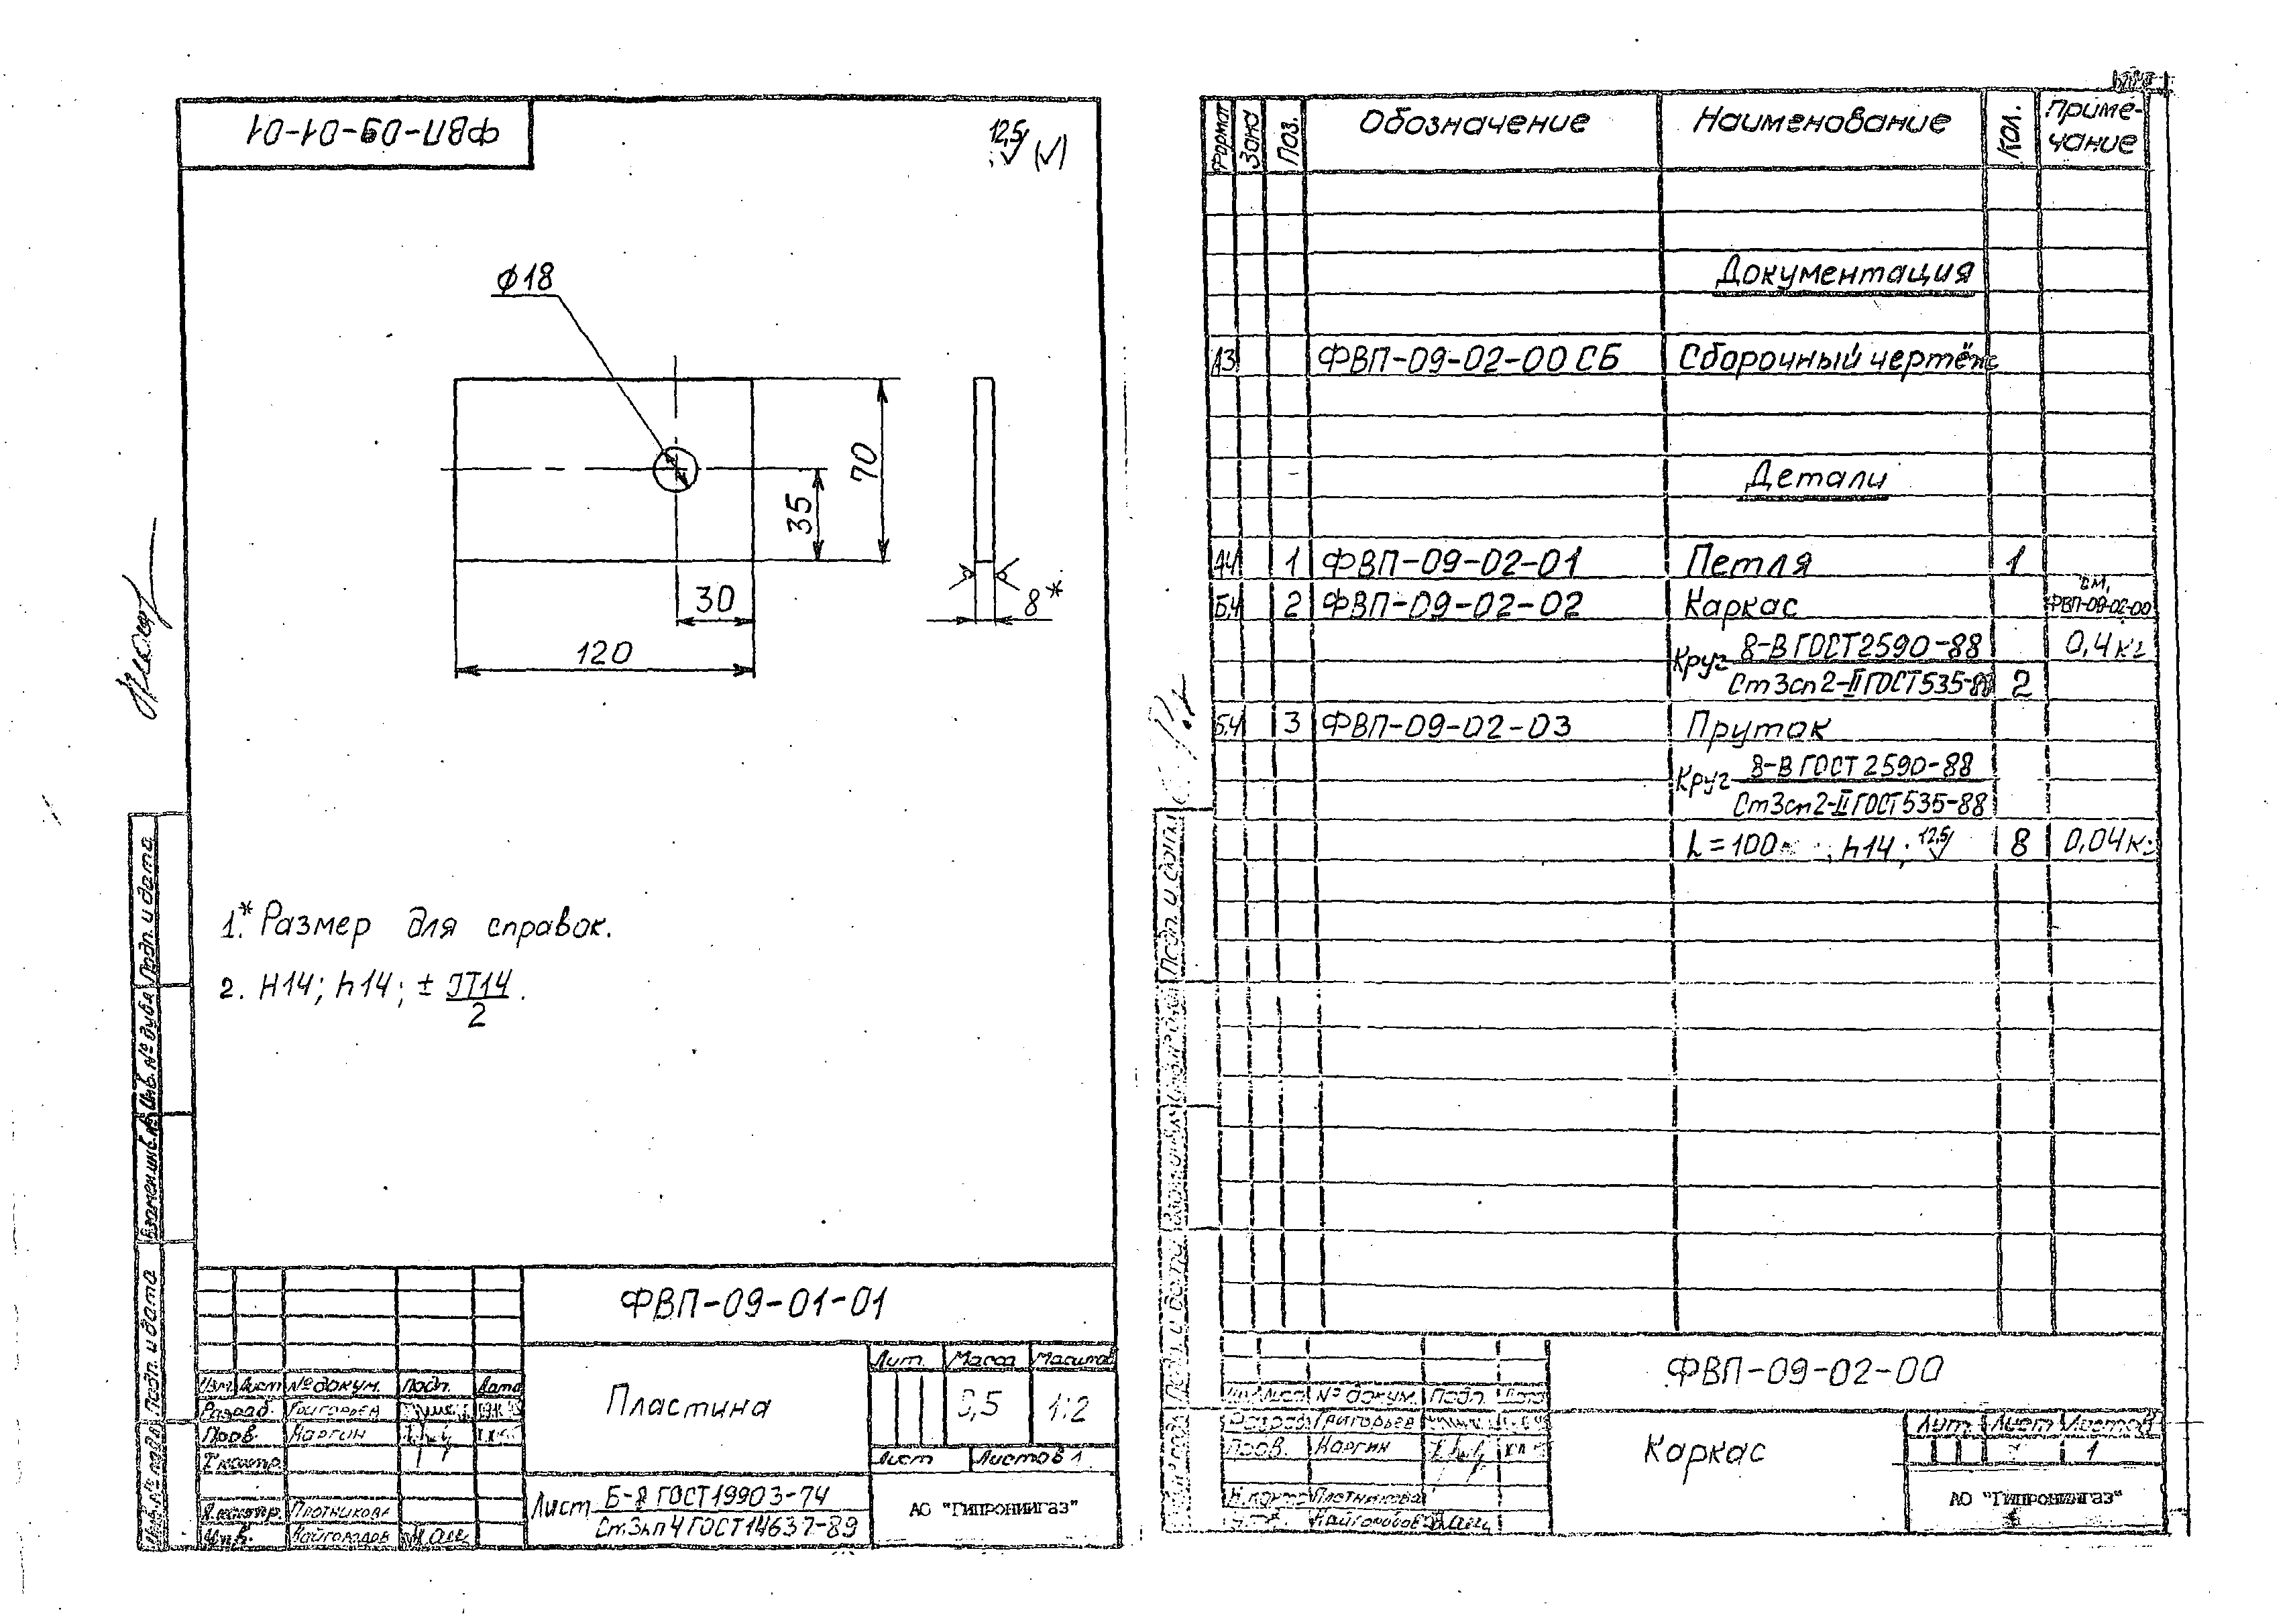 ФВП-09-01-01
12,5 (√)
⌀18
70
35
30
120
8*
1.* Размер для справок.
2. H14; h14; ± IT14/2.
Подп. и дата
Инв. № дубл.
Взамен инв. №
Подп. и дата
Инв. № подл.
ФВП-09-01-01
Изм. Лист № докум. Подп. Дата
Разраб. Григорьев
Пров. Каргин
Т.контр.
Н.контр. Плотникова
Утв.
Пластина
Лит. Масса Масштаб
0,5 1:2
Лист Листов 1
Лист Б-8 ГОСТ 19903-74
Ст3кп4 ГОСТ 14637-89
АО "Гипрониигаз"
Формат Зона Поз. Обозначение Наименование Кол. Приме-
чание
Документация
А3 ФВП-09-02-00 СБ Сборочный чертёж
Детали
А4 1 ФВП-09-02-01 Петля 1
Б.Ч 2 ФВП-09-02-02 Каркас см.
ФВП-09-02-00
Круг 8-В ГОСТ 2590-88 0,4 кг
Ст3сп2-II ГОСТ 535-88 2
Б.Ч 3 ФВП-09-02-03 Пруток
Круг 8-В ГОСТ 2590-88
Ст3сп2-II ГОСТ 535-88
L=100 h14; 12,5 8 0,04 кг
Подп. и дата
ФВП-09-02-00
Изм. Лист № докум. Подп. Дата
Разраб. Григорьев
Пров. Каргин
Н.контр. Плотникова
Каркас
Лит. Лист Листов
1
АО "Гипрониигаз"